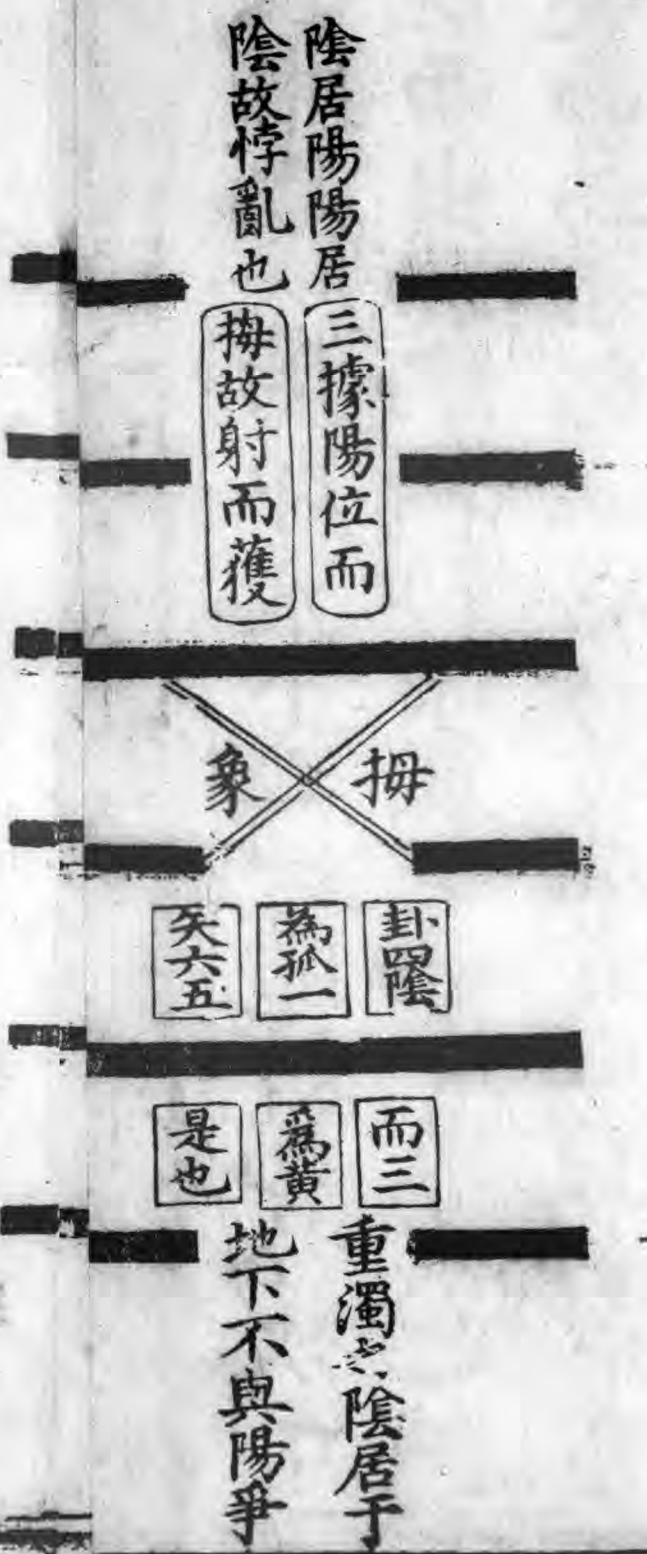 陰居陽陽居
陰故悖亂也
三據陽位而
拇故射而獲
拇
象
卦四陰
為狐一
矢六五
而三
爲黄
是也
重濁之陰居于
地下不與陽爭